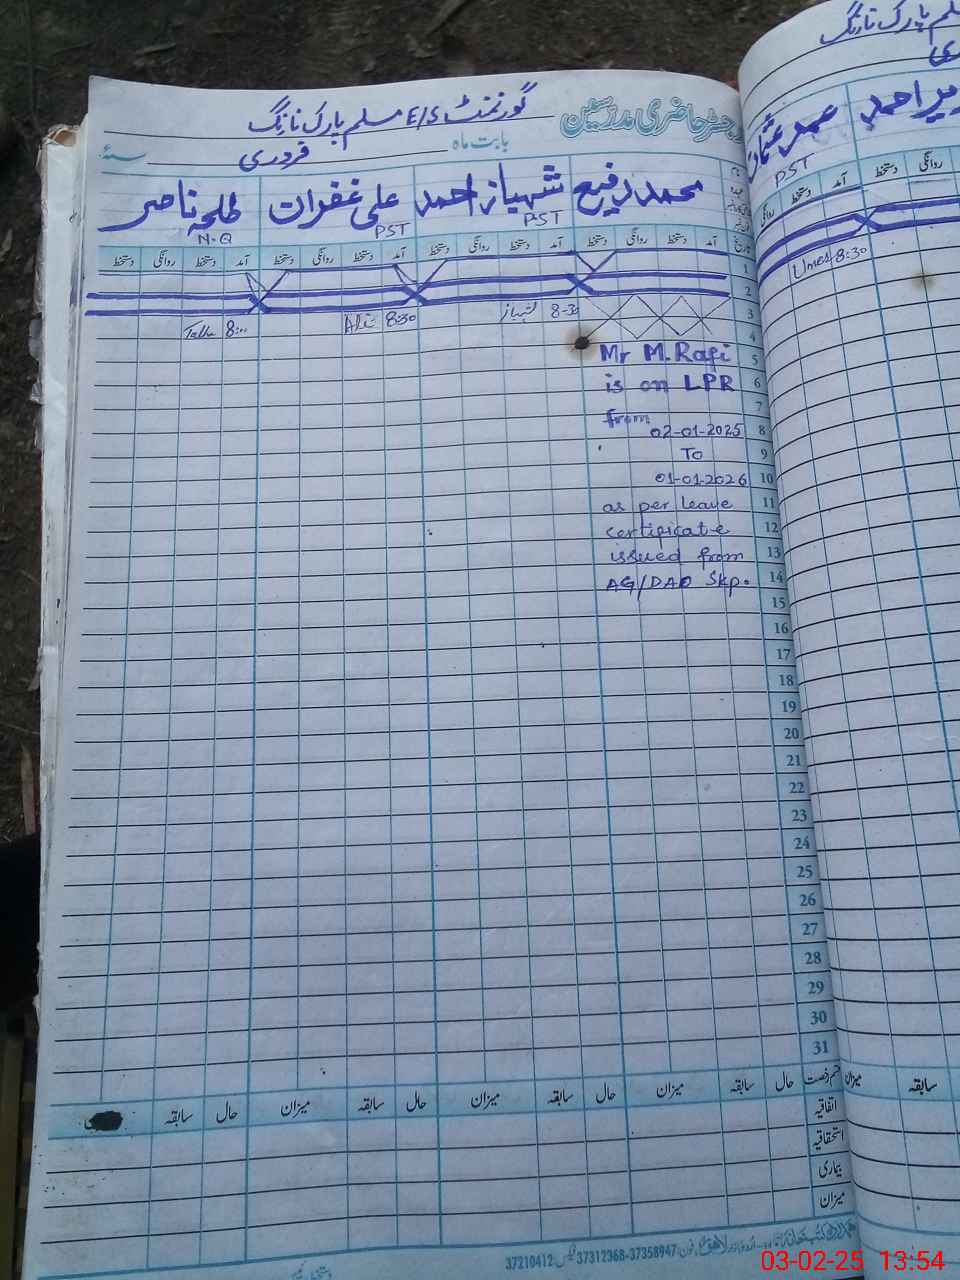 رجسٹر حاضری مدرسین
گورنمنٹ E/S مسلم پارک نارنگ
بابت ماہ فروری سنۂ
محمد رفیع شہباز احمد علی غفران طلحہ ناصر
PST PST N-Q
آمد دستخط روانگی دستخط آمد دستخط روانگی دستخط آمد دستخط روانگی دستخط آمد دستخط روانگی دستخط
1
2
3
8-30 شہباز
8:30 Ali
8:00 Talha
4
5 Mr M.Rafi
6 is on LPR
7 from
8 02-01-2025
9 To
10 01-01-2026
11 as per leave
12 certificate
13 issued from
14 AG/DAO Skp.
15
16
17
18
19
20
21
22
23
24
25
26
27
28
29
30
31
قسم رخصت حال سابقہ میزان حال سابقہ میزان حال سابقہ میزان حال سابقہ
اتفاقیہ
استحقاقیہ
بیماری
میزان
اردو بازار لاہور فون: 37358947-37312368 فیکس: 37210412
مسلم پارک نارنگ
PST
آمد دستخط روانگی
دستخط روانگی
Umer 8:30
میزان سابقہ
03-02-25 13:54